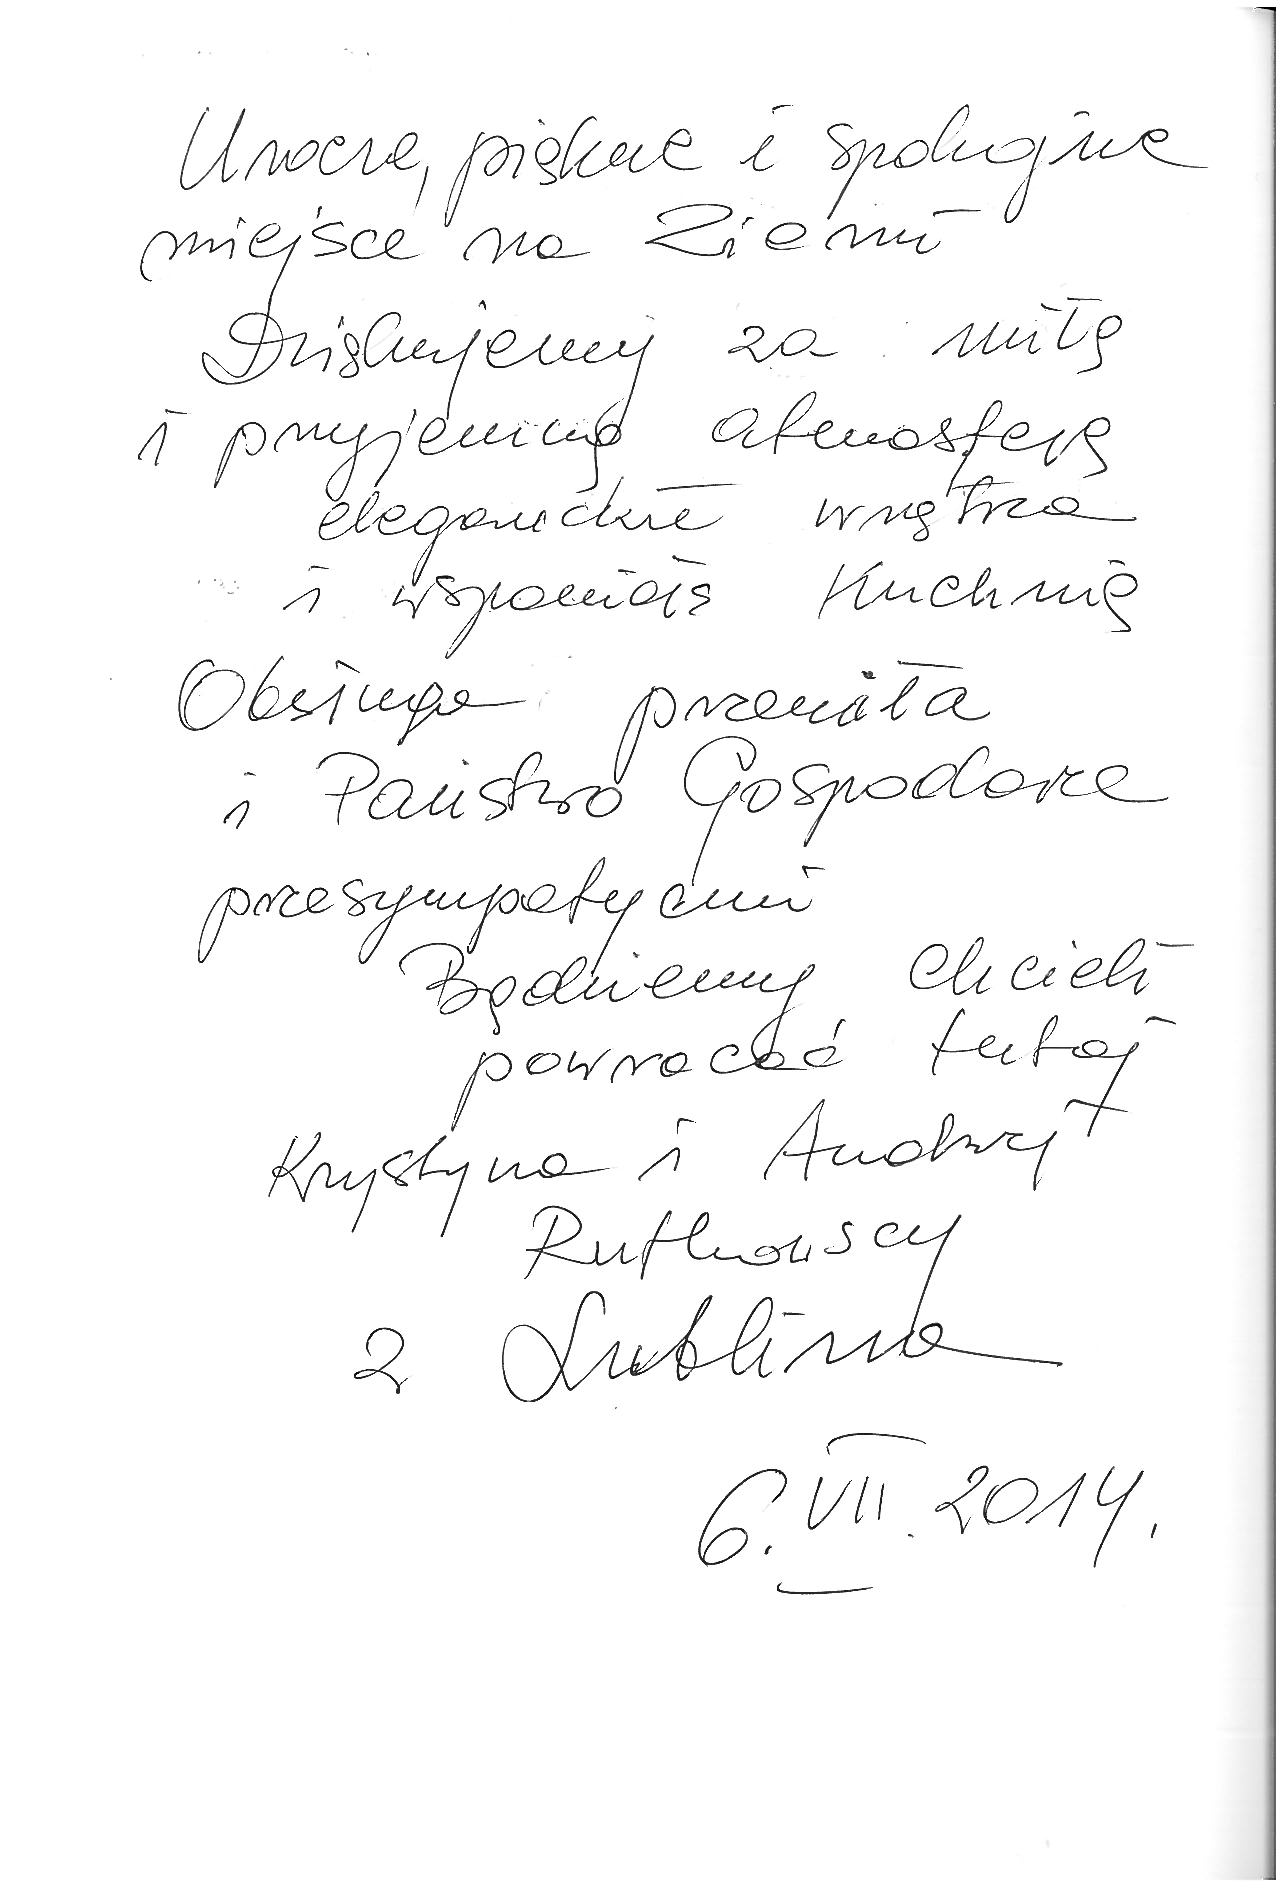 Urocze, piękne i spokojne
miejsce na Ziemi
Dziękujemy za miłą
i przyjemną atmosferę
eleganckie wnętrza
i wspaniałą Kuchnię
Obsługa przemiła
i Państwo Gospodarze
przesympatyczni
Będziemy chcieli
powracać tutaj
Krystyna i Andrzej
Rutkowscy
z Lublina
6.VII.2014.